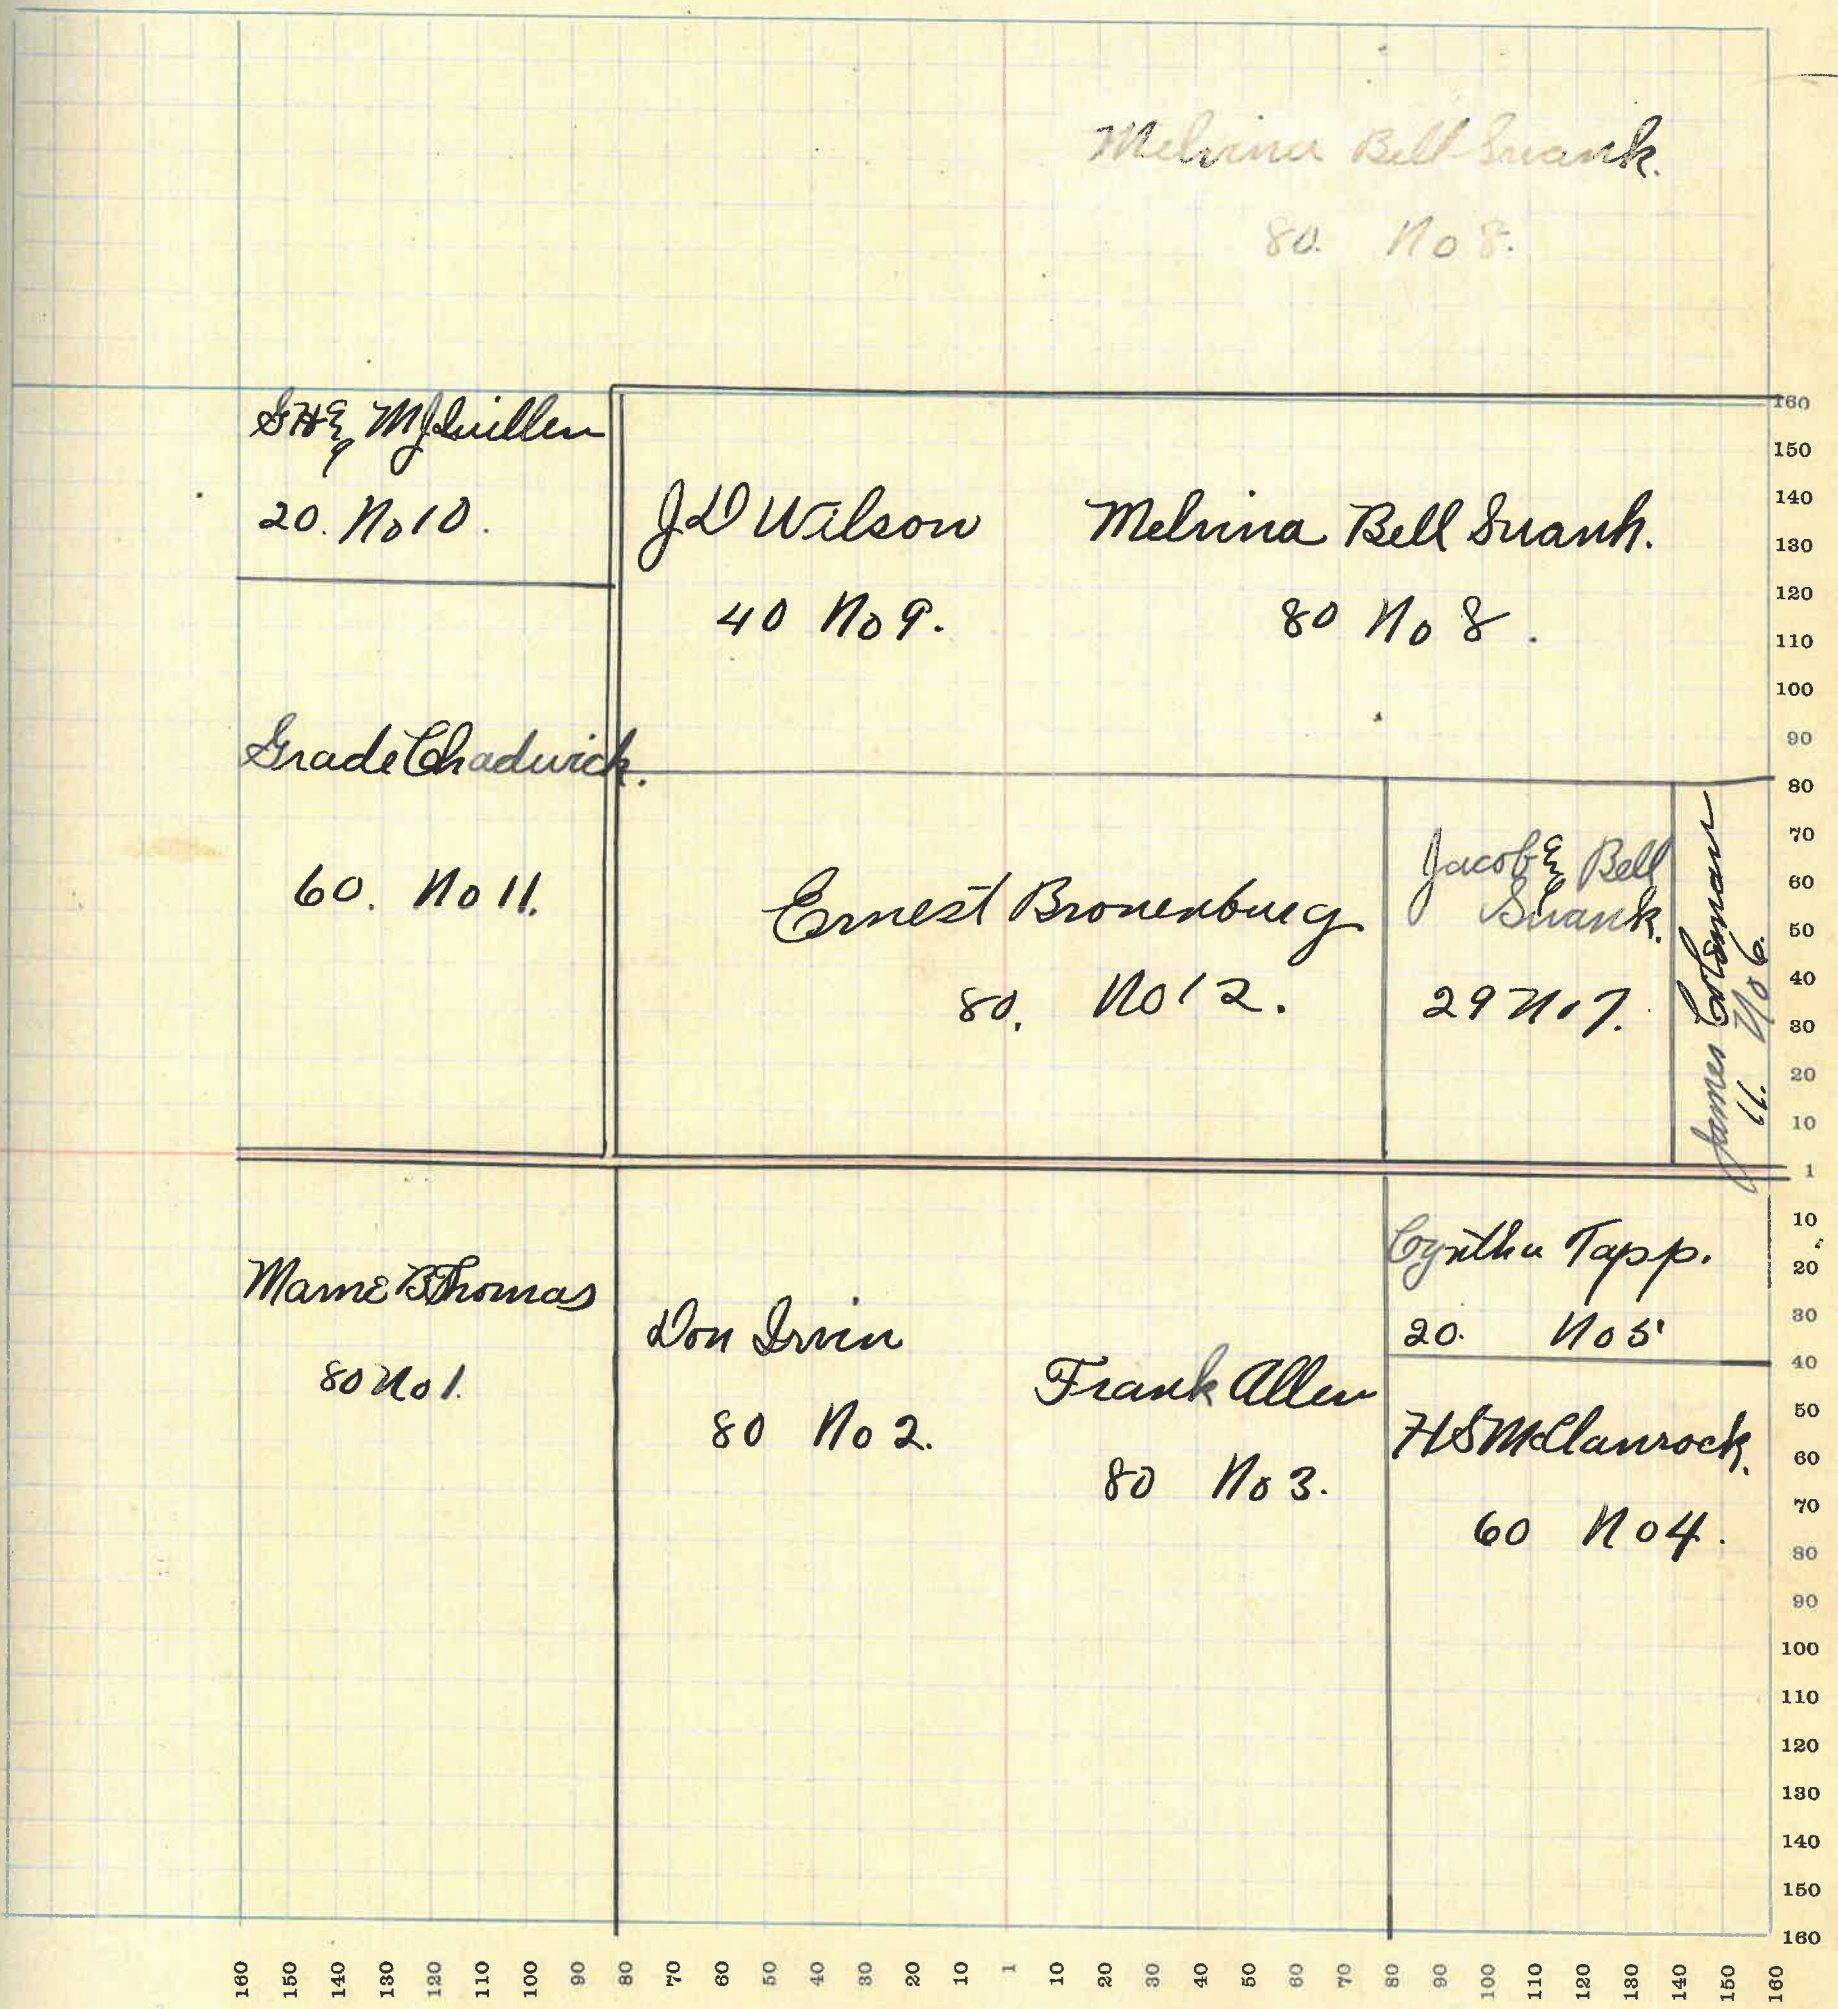 Melvina Bell Swank.
80. No 8.
G H & M J Quillen
20. No 10.
J D Wilson
40 No 9.
Melvina Bell Swank.
80 No 8.
Grade Chadwick.
60. No 11.
Ernest Bronenburg
80. No 12.
Jacob & Bell
Swank.
29 No 7.
James Colsman
11. No 6.
Mame B Thomas
80 No 1.
Don Irvin
80 No 2.
Frank Allen
80 No 3.
Cyntha Tapp.
20. No 5
H S McClanrock.
60 No 4.
160
150
140
130
120
110
100
90
80
70
60
50
40
30
20
10
1
10
20
30
40
50
60
70
80
90
100
110
120
130
140
150
160
160 150 140 130 120 110 100 90 80 70 60 50 40 30 20 10 1 10 20 30 40 50 60 70 80 90 100 110 120 130 140 150 160